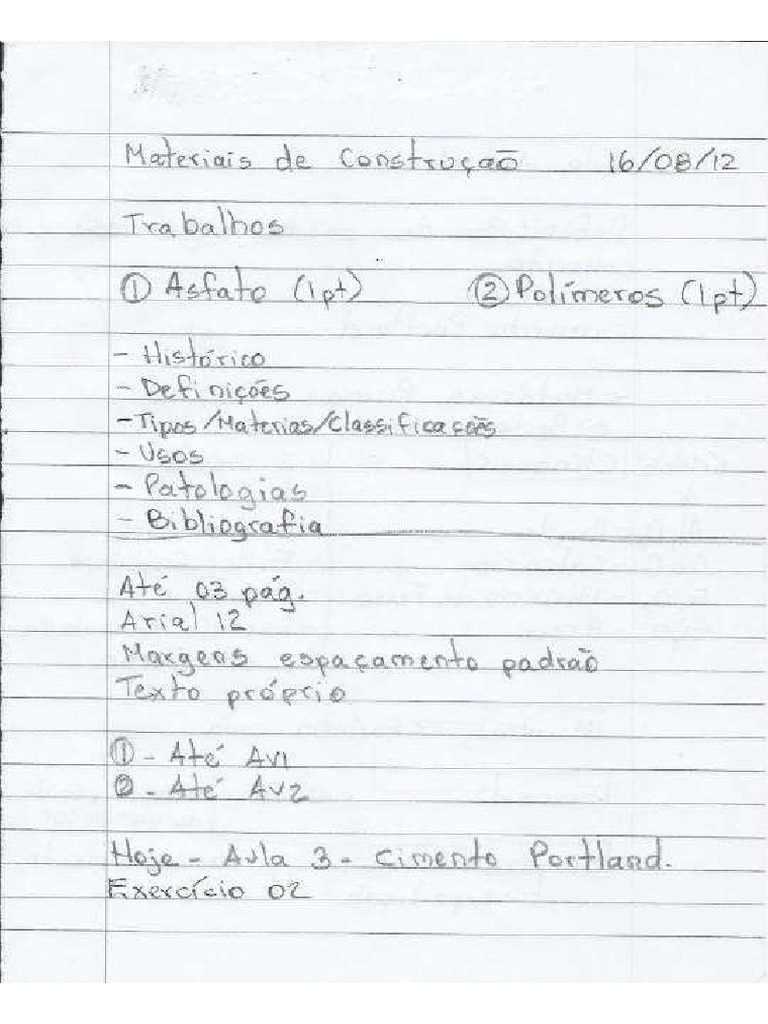 Materiais de Construção 16/08/12
Trabalhos
① Asfato (1pt) ② Polímeros (1pt)
- Histórico
- Definições
- Tipos/Materias/Classificações
- Usos
- Patologias
- Bibliografia
Até 03 pág.
Arial 12
Margens espaçamento padrão
Texto próprio
① - Até AV1
② - Até AV2
Hoje - Aula 3 - Cimento Portland.
Exercício 02